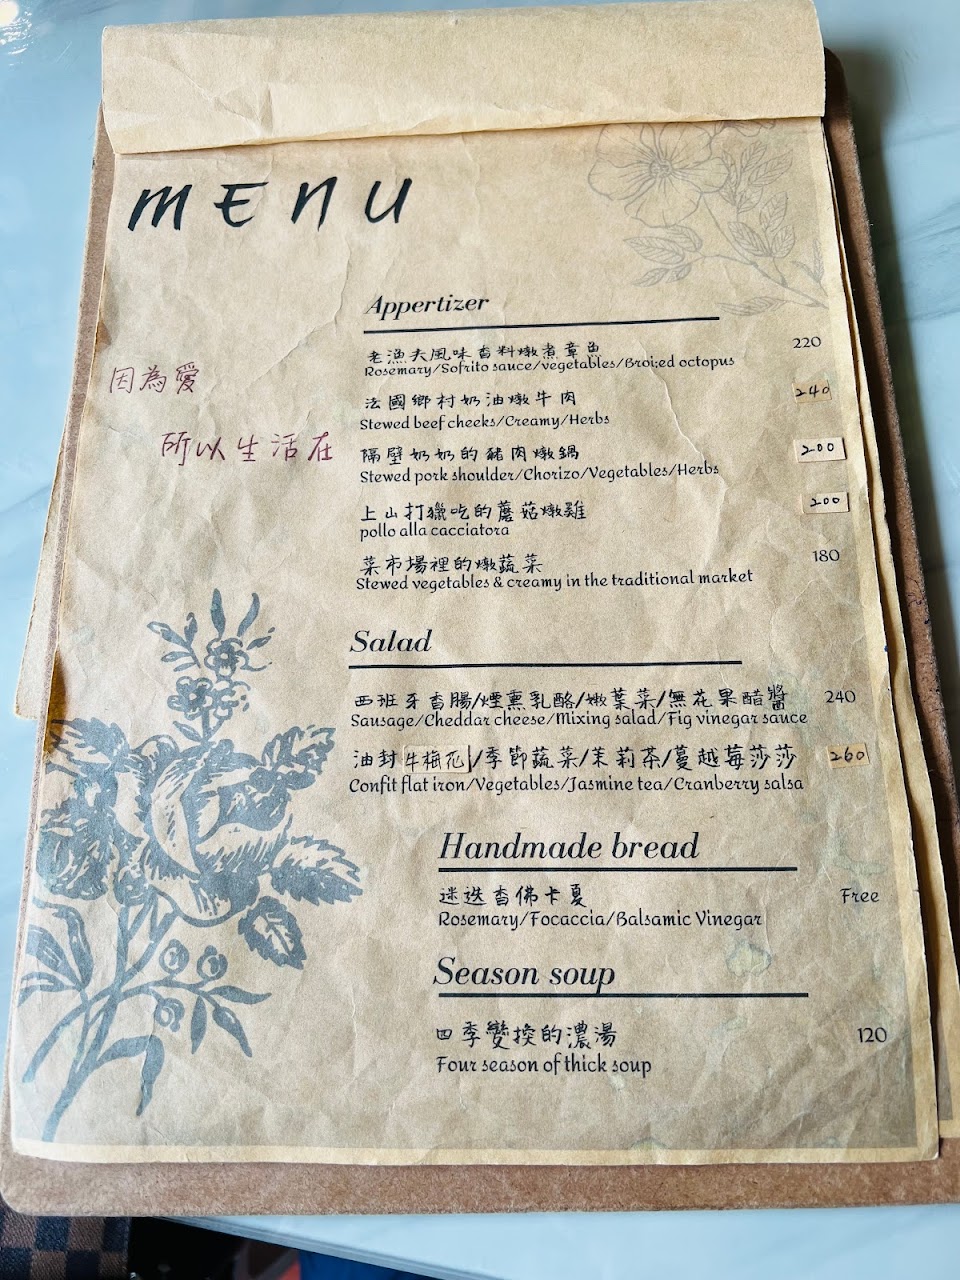 MENU
Appertizer
老漁夫風味香料燉煮章魚 220
Rosemary/Sofrito sauce/vegetables/Broi;ed octopus
因為愛
法國鄉村奶油燉牛肉 240
Stewed beef cheeks/Creamy/Herbs
所以生活在
隔壁奶奶的豬肉燉鍋 200
Stewed pork shoulder/Chorizo/Vegetables/Herbs
上山打獵吃的蘑菇燉雞 200
pollo alla cacciatora
菜市場裡的燉蔬菜 180
Stewed vegetables & creamy in the traditional market
Salad
西班牙香腸/煙熏乳酪/嫩葉菜/無花果醋醬 240
Sausage/Cheddar cheese/Mixing salad/Fig vinegar sauce
油封牛梅花/季節蔬菜/茉莉茶/蔓越莓莎莎 260
Confit flat iron/Vegetables/Jasmine tea/Cranberry salsa
Handmade bread
迷迭香佛卡夏 Free
Rosemary/Focaccia/Balsamic Vinegar
Season soup
四季變換的濃湯 120
Four season of thick soup